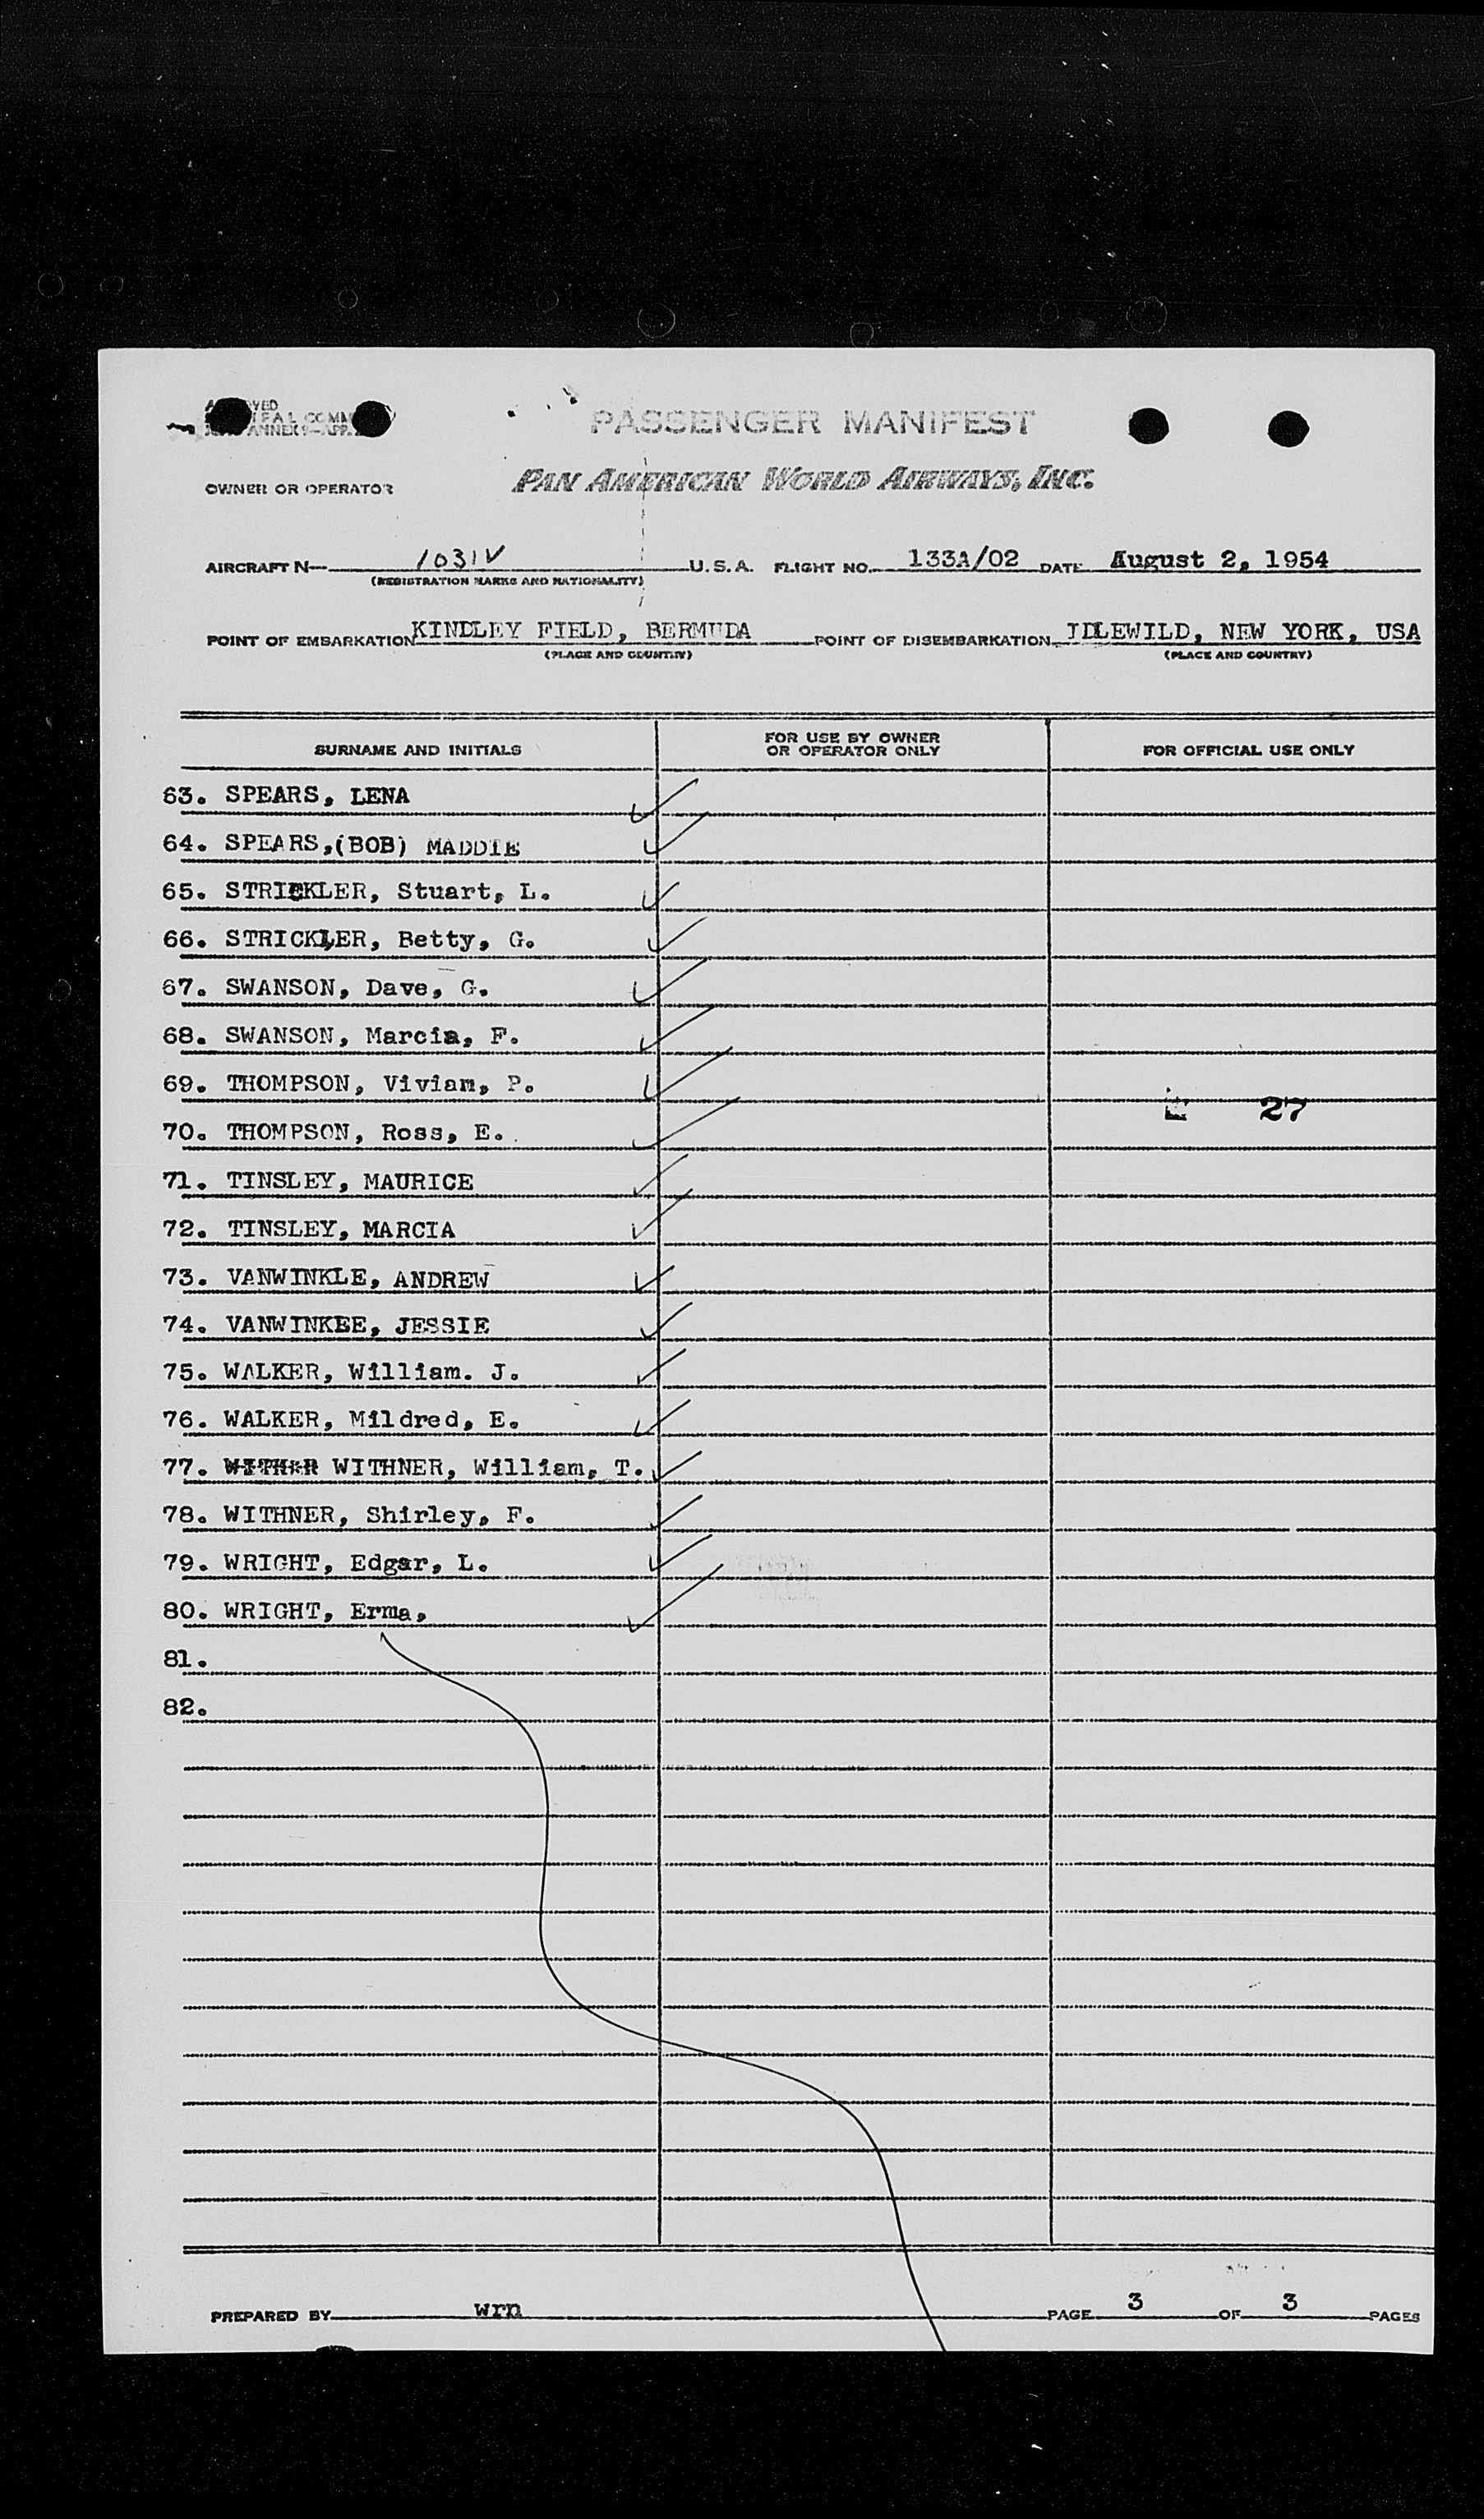 PASSENGER MANIFEST
OWNER OR OPERATOR PAN AMERICAN WORLD AIRWAYS, INC.
AIRCRAFT N- 1031V U.S.A. FLIGHT NO. 133A/02 DATE August 2, 1954
(REGISTRATION MARKS AND NATIONALITY)
POINT OF EMBARKATION KINDLEY FIELD, BERMUDA POINT OF DISEMBARKATION IDLEWILD, NEW YORK, USA
(PLACE AND COUNTRY) (PLACE AND COUNTRY)
SURNAME AND INITIALS FOR USE BY OWNER OR OPERATOR ONLY FOR OFFICIAL USE ONLY
63. SPEARS, LENA
64. SPEARS,(BOB) MADDIE
65. STRICKLER, Stuart, L.
66. STRICKLER, Betty, G.
67. SWANSON, Dave, G.
68. SWANSON, Marcia, F.
69. THOMPSON, Vivian, P.
27
70. THOMPSON, Ross, E.
71. TINSLEY, MAURICE
72. TINSLEY, MARCIA
73. VANWINKLE, ANDREW
74. VANWINKEE, JESSIE
75. WALKER, William. J.
76. WALKER, Mildred, E.
77. WITHNER, William, T.
78. WITHNER, Shirley, F.
79. WRIGHT, Edgar, L.
80. WRIGHT, Erma,
81.
82.
PREPARED BY wrn PAGE 3 OF 3 PAGES